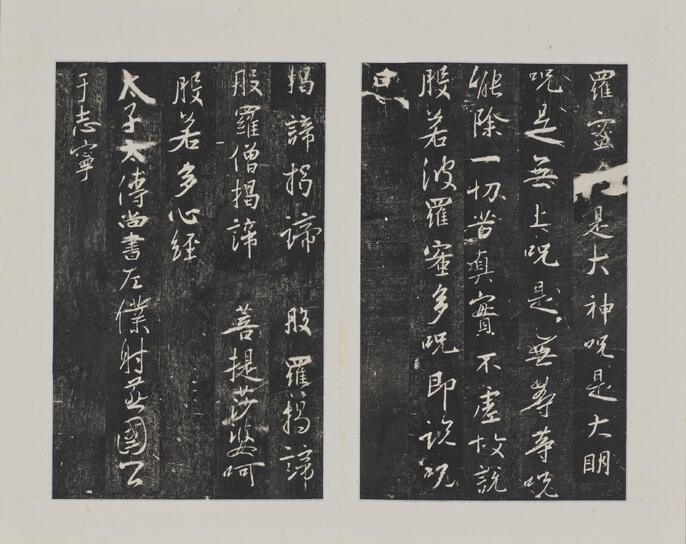 羅蜜是大神呪是大明
呪是無上呪是無等等呪
能除一切苦真實不虛故說
般若波羅蜜多呪即說呪
曰
揭諦揭諦 般羅揭諦
般羅僧揭諦 菩提莎婆呵
般若多心經
太子太傅尚書左僕射燕國公
于志寧